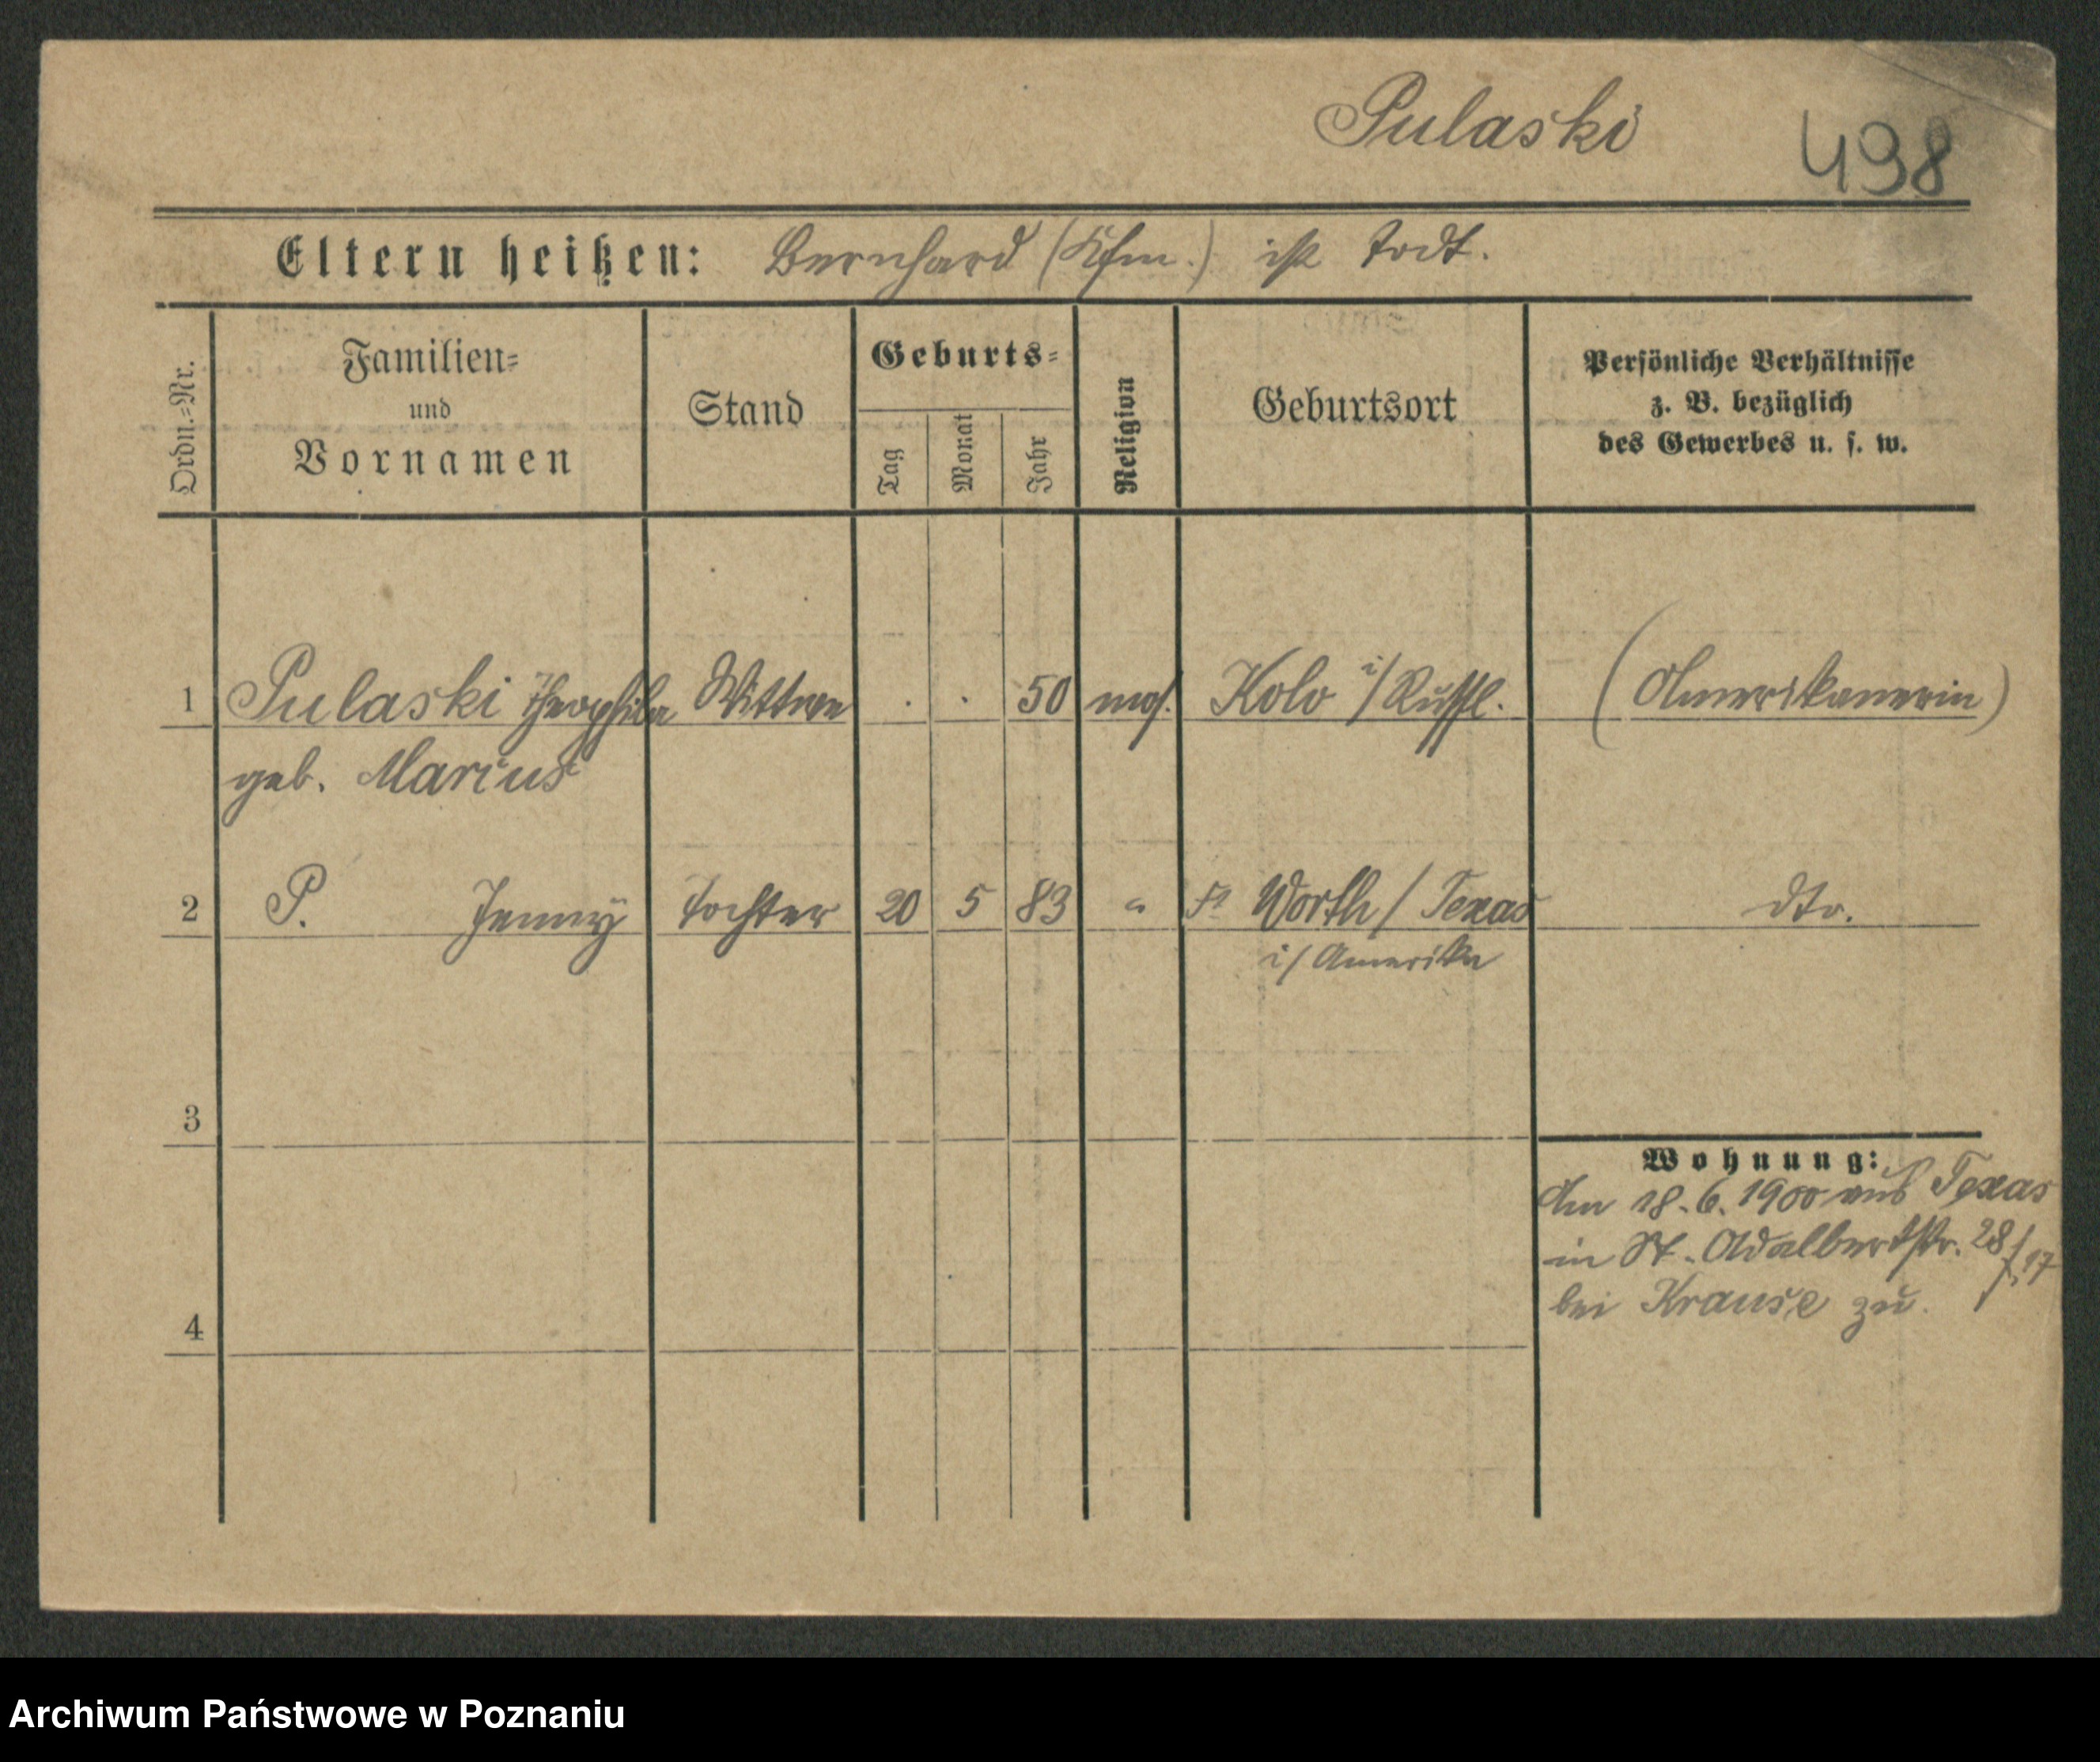 Pulaski
498
Eltern heißen: Bernhard (Kfm.) ist todt.
Ordn.-Nr.
Familien-
und
Vornamen
Stand
Geburts-
Tag
Monat
Jahr
Religion
Geburtsort
Persönliche Verhältnisse
z. B. bezüglich
des Gewerbes u. s. w.
1 Pulaski Theophila Wittwe . . 50 mos. Kolo i/Russl. (Amerikanerin)
geb. Marius
2 P. Jenny Tochter 20 5 83 " Ft Worth / Texas dto.
i/ Amerika
3
Wohnung:
Am 18.6.1900 aus Texas
in St. Adalbertstr. 28/
17
bei Krause zu.
4
Archiwum Państwowe w Poznaniu